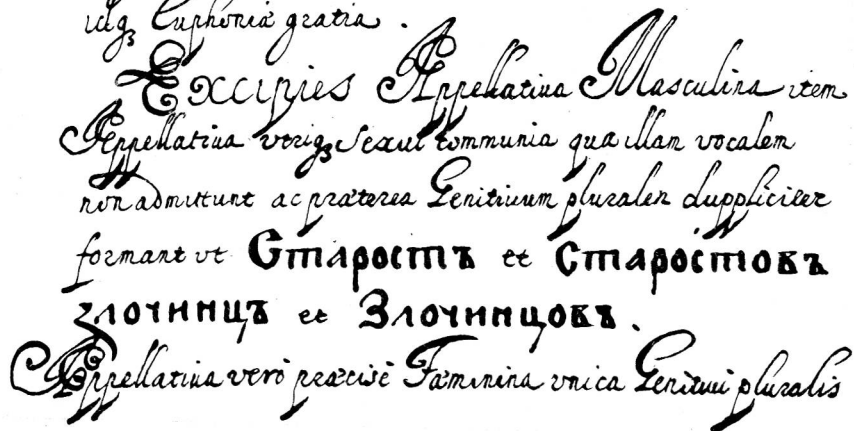 Euphoniæ gratia .
Excipies Appellatiua Masculina item
Appellatiua vtriq3 sexui communia quæ illam vocalem
non admittunt ac præterea Genitiuum pluralem duppliciter
formant vt Старостъ et Старостовъ
злочинцъ et Злочинцовъ.
Appellatiua verò præcisè Fæminina vnica Genitiui pluralis